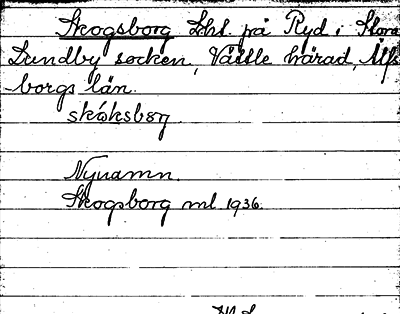 Skogsborg Lht. på Ryd i Stora
Lundby socken, Vättle härad, Älfs
borgs län.
skóksbɷrg
Nynamn.
Skogsborg ml 1936.